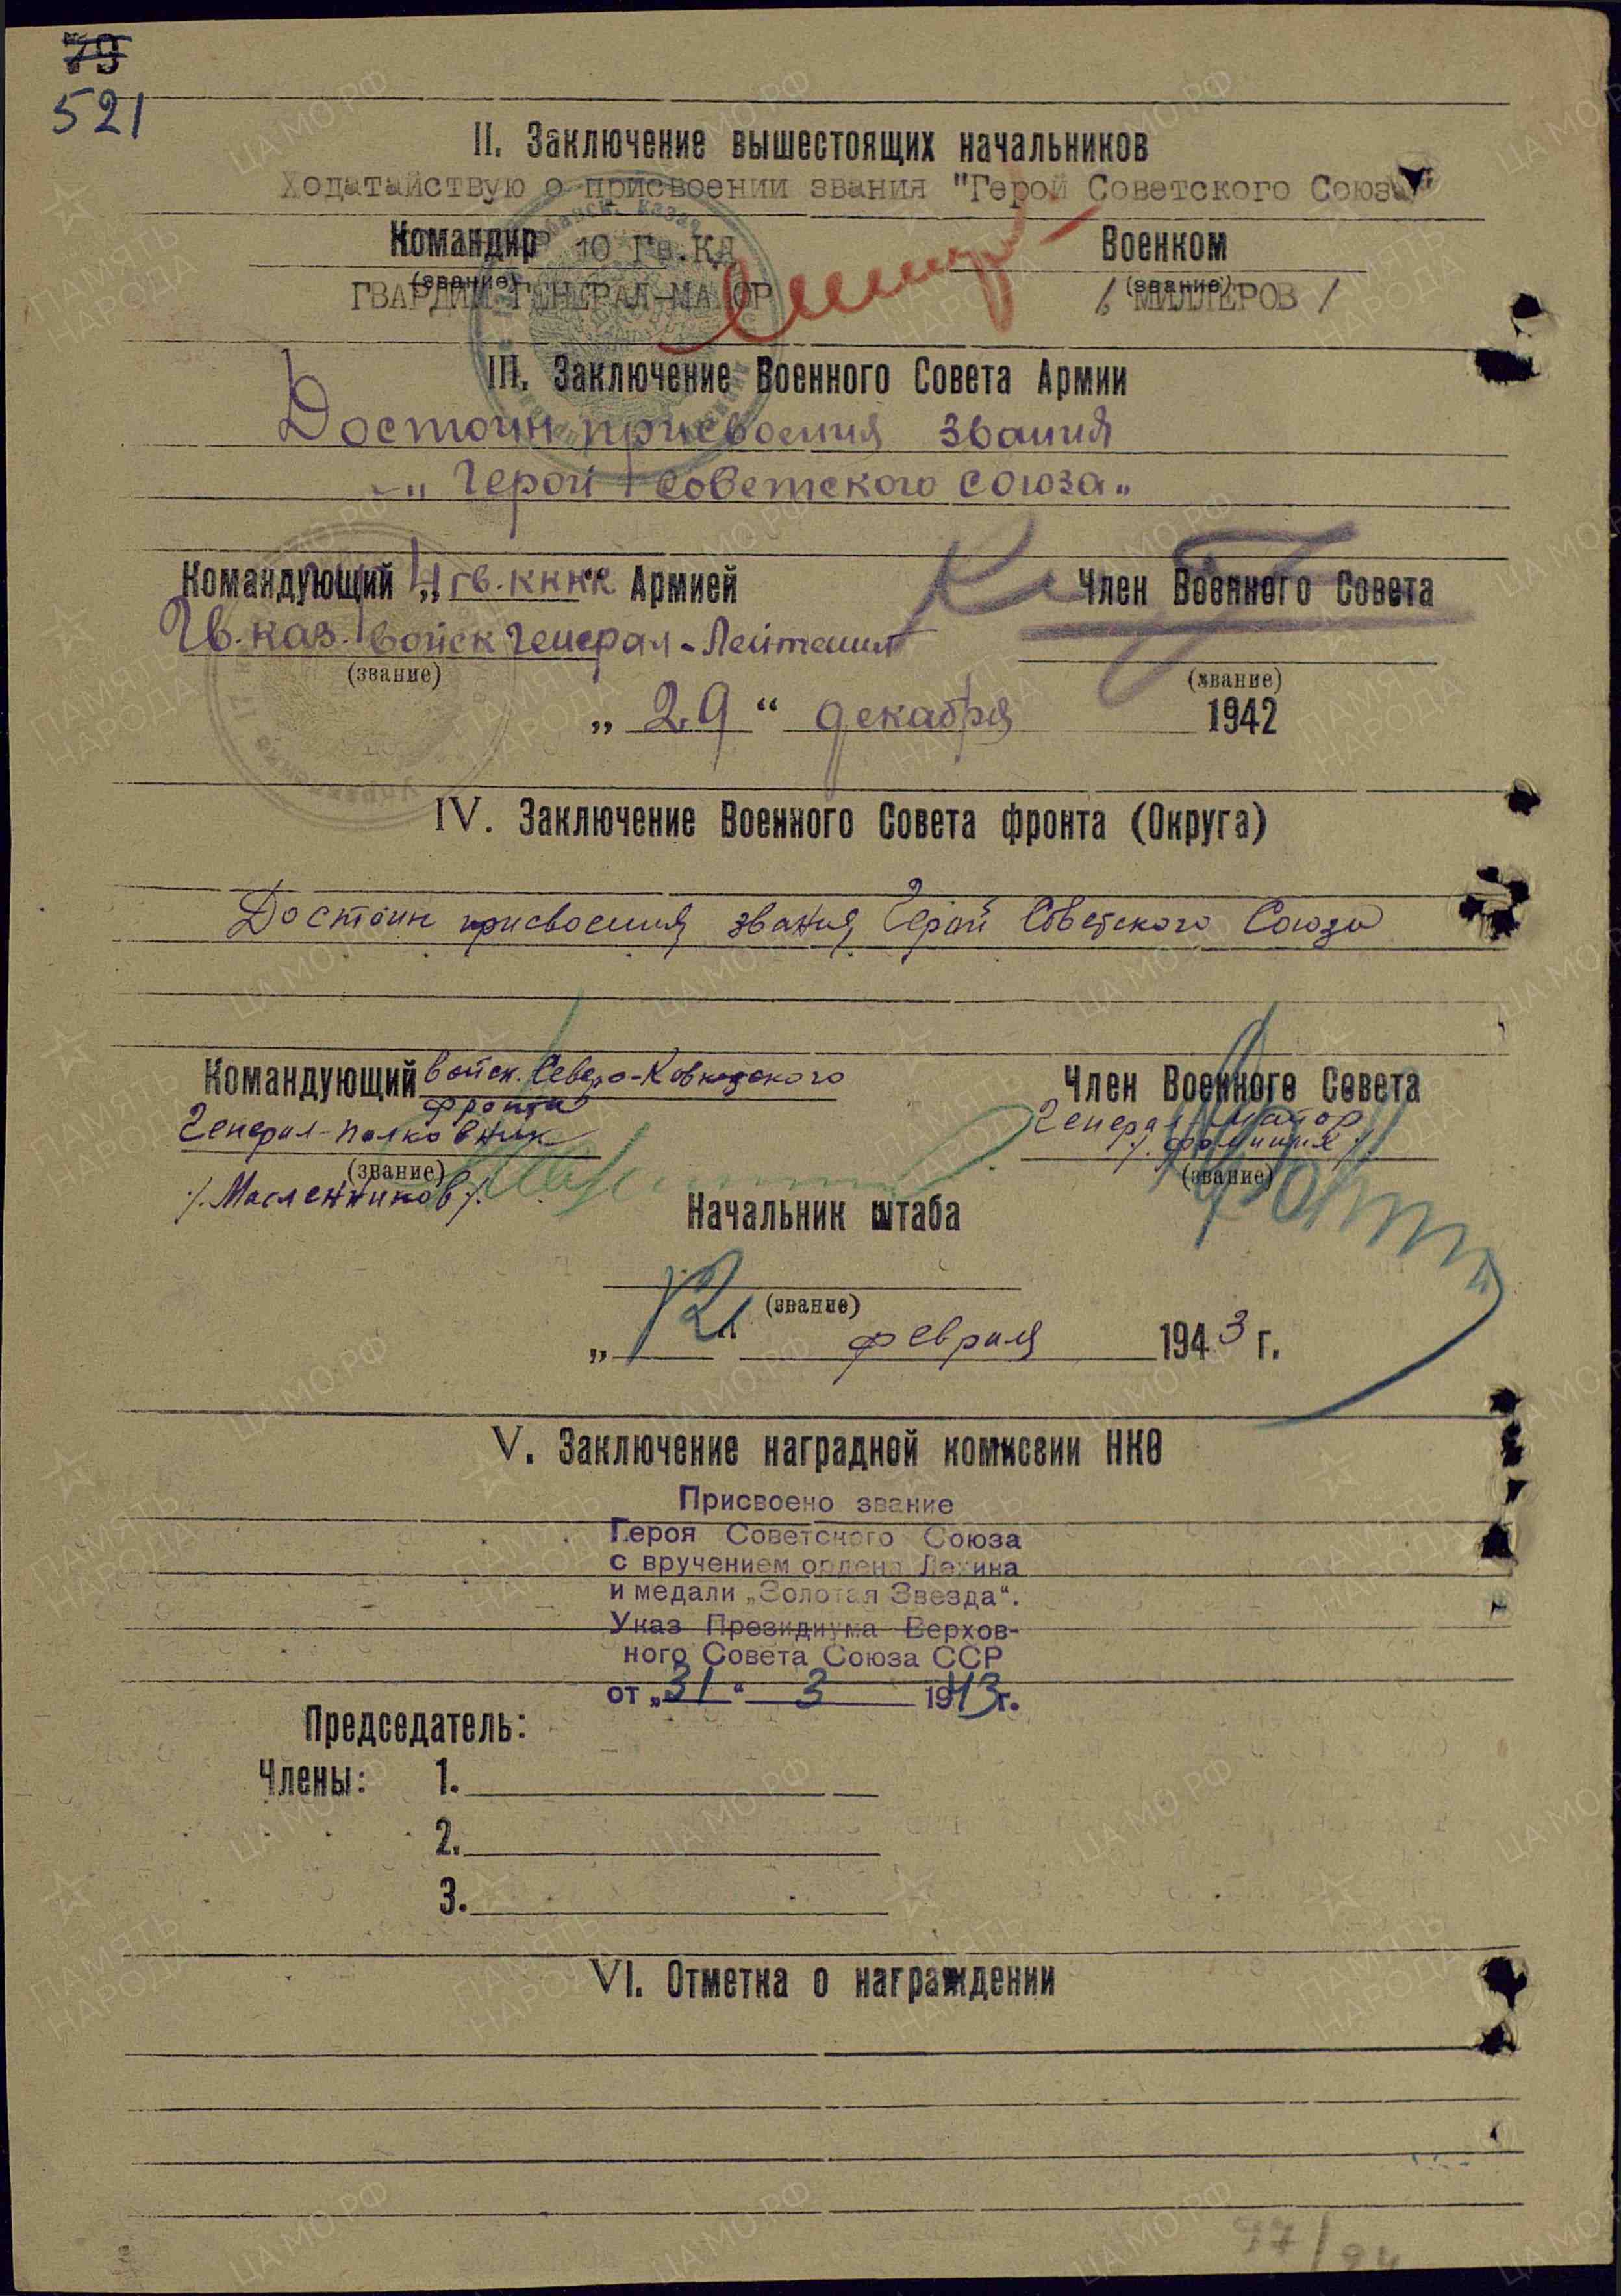 79
521
II. Заключение вышестоящих начальников
Ходатайствую о присвоении звания "Герой Советского Союза"
Командир 10 Гв.КД Военком
(звание) (звание)
ГВАРДИИ ГЕНЕРАЛ-МАЙОР / МИЛЛЕРОВ /
III. Заключение Военного Совета Армии
Достоин присвоения звания
"Герой Советского Союза"
Командующий „4 гв. кккк“ Армией Член Военного Совета
Гв. каз. войск генерал-лейтенант
(звание) (звание)
„29“ декабря 1942
IV. Заключение Военного Совета фронта (Округа)
Достоин присвоения звания Герой Советского Союза
Командующий войск. Северо-Кавказского Член Военного Совета
фронта
Генерал-полковник Генерал майор
/. Фоминых /.
(звание) (звание)
/. Масленников /.
Начальник штаба
(звание)
„12“ февраля 1943 г.
V. Заключение наградной комиссии НКО
Присвоено звание
Героя Советского Союза
с вручением ордена Ленина
и медали „Золотая Звезда“.
Указ Президиума Верхов-
ного Совета Союза ССР
от „31“ 3 1943 г.
Председатель:
Члены: 1.
2.
3.
VI. Отметка о награждении
97/94